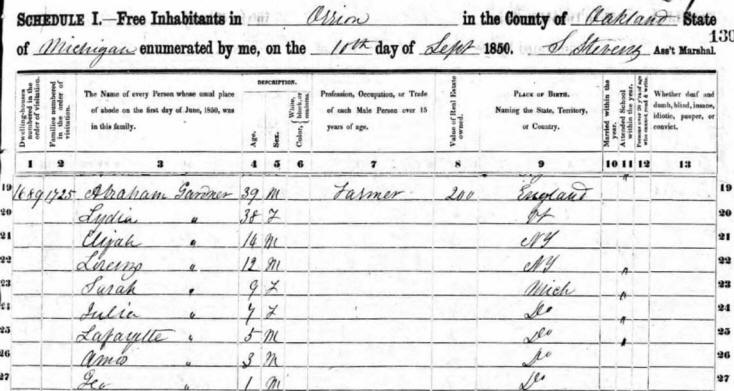 SCHEDULE I.—Free Inhabitants in Orion in the County of Oakland State
of Michigan enumerated by me, on the 10th day of Sept 1850. S Stevens Ass't Marshal.
130
Dwelling-houses numbered in the order of visitation.
Families numbered in the order of visitation.
The Name of every Person whose usual place of abode on the first day of June, 1850, was in this family.
DESCRIPTION.
Age.
Sex.
Color, White, black, or mulatto.
Profession, Occupation, or Trade of each Male Person over 15 years of age.
Value of Real Estate owned.
PLACE OF BIRTH. Naming the State, Territory, or Country.
Married within the year.
Attended School within the year.
Persons over 20 y'rs of age who cannot read & write.
Whether deaf and dumb, blind, insane, idiotic, pauper, or convict.
1 2 3 4 5 6 7 8 9 10 11 12 13
19 1689 1725 Abraham Gardner 39 M Farmer 200 England 19
20 Lydia " 38 F Vt 20
21 Elijah " 14 M NY 21
22 Lorenzo " 12 M NY " 22
23 Sarah " 9 F Mich " 23
24 Julia " 7 F Do " 24
25 Lafayette " 5 M Do " 25
26 Amos " 3 M Do 26
27 Geo " 1 M Do 27